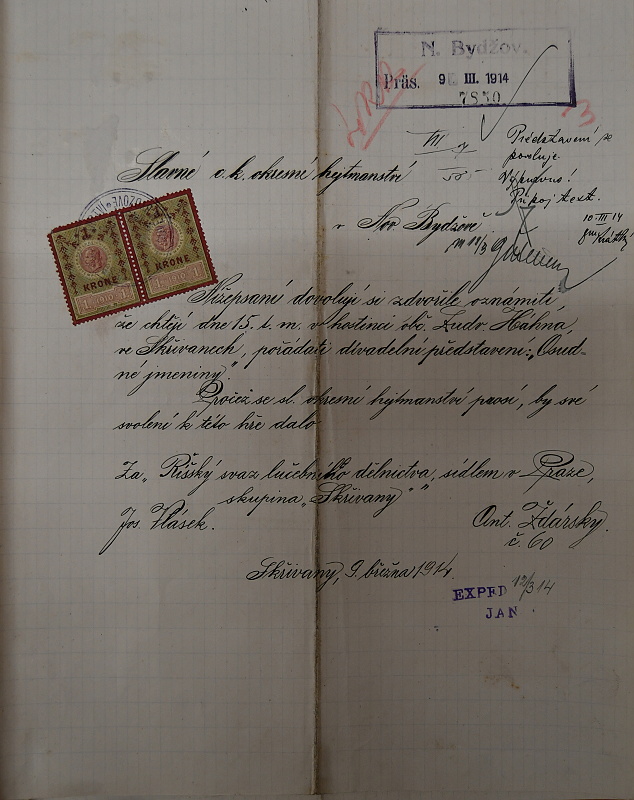 N. Bydžov.
Präs. 9 III. 1914
7850
VIII
Představení se
povoluje.
Připoj text.
10-III 14
Slavné c.k. okresné hejtmanství
v Nov. Bydžově
KRONE
KRONE
1 1910 1
1 1910 1
Nížepsaní dovolují si zdvořile oznámiti
že chtějí dne 15. t. m. v hostinci obč. Ludv. Hahna,
ve Skřivanech, pořádati divadelní představení: „Osud-
né jmeniny".
Pročež se sl. okresné hejtmanství prosí, by své
svolení k této hře dalo
Za „Říšský svaz lučebního dělnictva, sídlem v Praze,
skupina „Skřivany""
Jos. Vlásek.
Ant. Žďárský.
č. 60
Skřivany, 9. března 1914.
EXPED 12/3 14
JAN